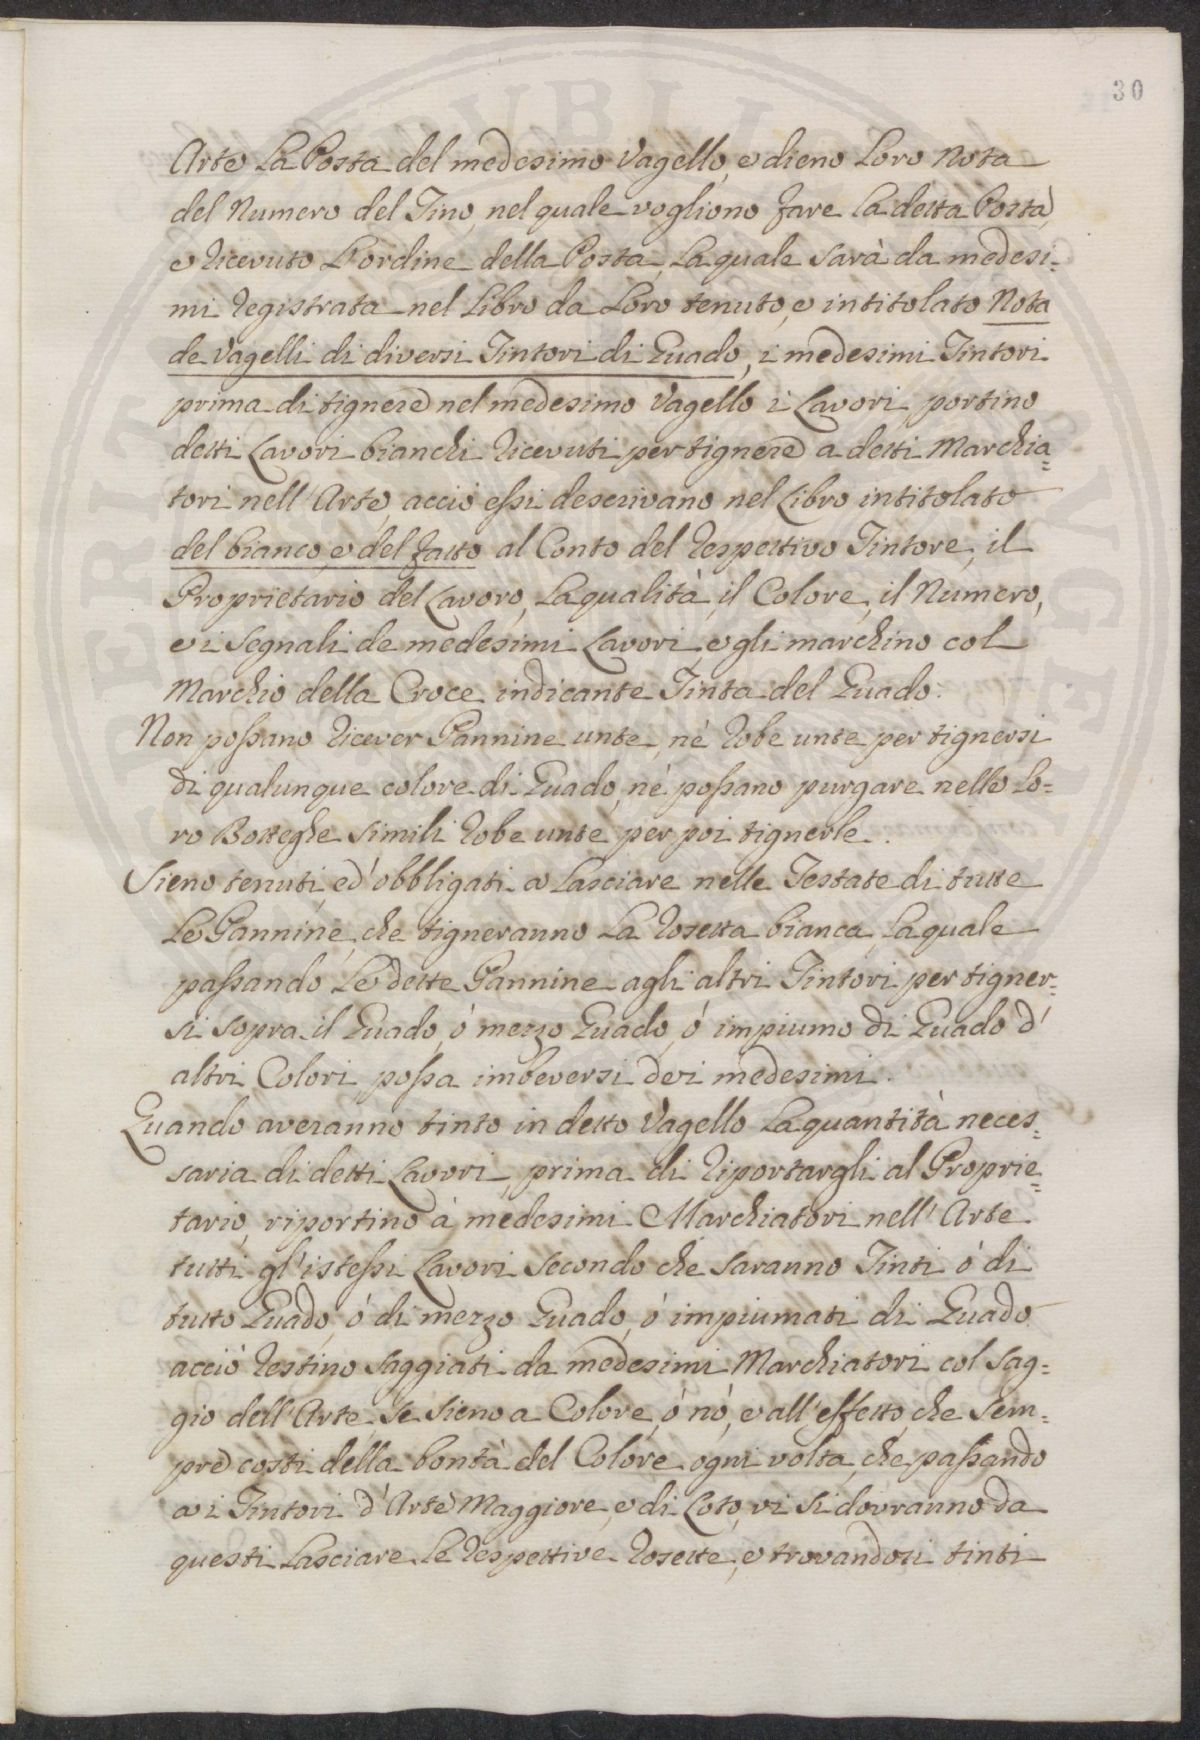 30
Arte La Posta del medesimo Vagello, e dieno Loro Nota
del Numero del Tino, nel quale vogliono fare La detta Posta,
e ricevuto L'ordine della Posta, La quale sarà da medesi=
mi registrata nel Libro da Loro tenuto, e intitolato Nota
de Vagelli di diversi Tintori di Guado, i medesimi Tintori
prima di tignere nel medesimo Vagello i Lavori portino
detti Lavori bianchi ricevuti per tignere a detti Marchia=
tori nell'Arte, acciò essi descrivano nel Libro intitolato
del bianco, e del fatto al Conto del respettivo Tintore, il
Proprietario del Lavoro, La qualità, il Colore, il Numero,
e i Segnali de medesimi Lavori, e gli marchino col
Marchio della Croce indicante Tinta del Guado.
Non possano ricever Pannine unte, nè robe unte per tignersi
di qualunque colore di Guado, nè possano purgare nelle Lo=
ro Botteghe simili robe unte per poi tignerle.
Sieno tenuti, ed' obbligati a Lasciare nelle Testate di tutte
Le Pannine, che tigneranno La rosetta bianca, La quale
passando Le dette Pannine agli altri Tintori per tigner=
si sopra il Guado, ó mezzo Guado, ó impiumo di Guado d'
altri Colori possa imbeversi dei medesimi.
Quando averanno tinto in detto Vagello La quantità neces=
saria di detti Lavori, prima di riportargli al Proprie=
tario, riportino à medesimi Marchiatori nell'Arte
tutti gl'istessi Lavori secondo che saranno Tinti ó di
tutto Guado, ó di mezzo Guado, ó impiumati di Guado
acciò restino saggiati da medesimi Marchiatori col Sag=
gio dell'Arte, se sieno a Colore, ó nò, e all'effetto, che Sem=
pre costi della bontà del Colore ogni volta, che passando
a i Tintori d'Arte Maggiore, e di Loto, vi si dovranno da
questi Lasciare Le respettive rosette, e trovandosi tinti